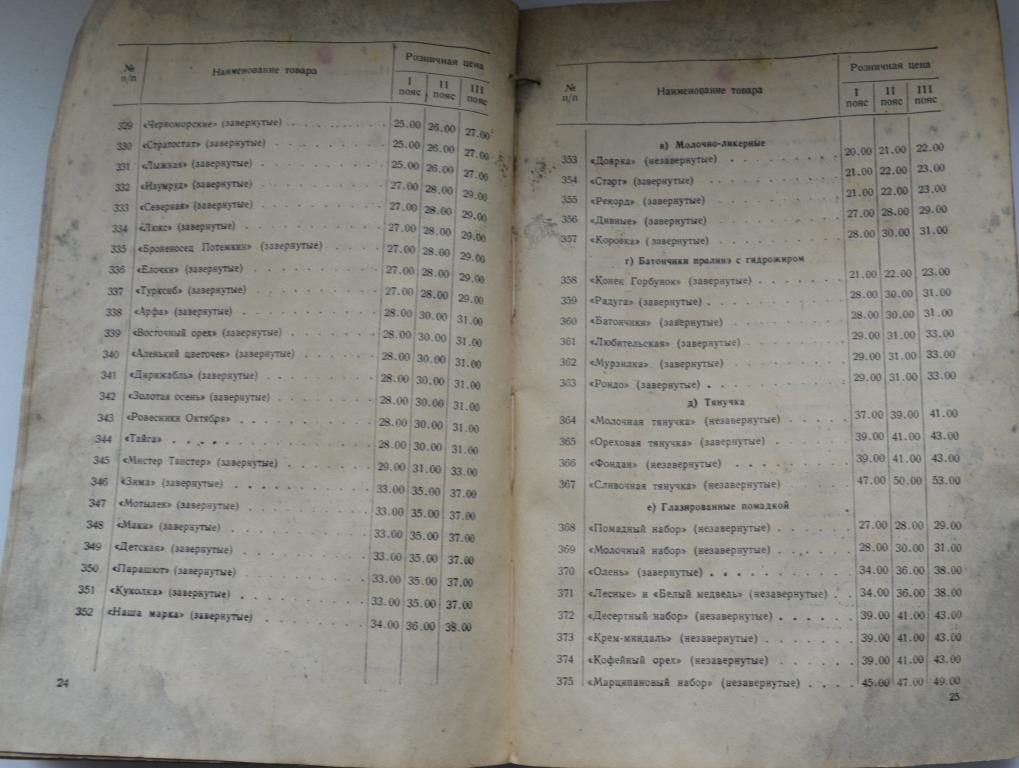 № п/п Наименование товара Розничная цена
I пояс II пояс III пояс
329 «Черноморские» (завернутые) 25.00 26.00 27.00
330 «Стратостат» (завернутые) 25.00 26.00 27.00
331 «Лыжная» (завернутые) 25.00 26.00 27.00
332 «Изумруд» (завернутые) 27.00 28.00 29.00
333 «Северная» (завернутые) 27.00 28.00 29.00
334 «Люкс» (завернутые) 27.00 28.00 29.00
335 «Броненосец Потемкин» (завернутые) 27.00 28.00 29.00
336 «Елочки» (завернутые) 27.00 28.00 29.00
337 «Турксиб» (завернутые) 27.00 28.00 29.00
338 «Арфа» (завернутые) 28.00 30.00 31.00
339 «Восточный орех» (завернутые) 28.00 30.00 31.00
340 «Аленький цветочек» (завернутые) 28.00 30.00 31.00
341 «Дирижабль» (завернутые) 28.00 30.00 31.00
342 «Золотая осень» (завернутые) 28.00 30.00 31.00
343 «Ровесники Октября» 28.00 30.00 31.00
344 «Тайга» 28.00 30.00 31.00
345 «Мистер Твистер» (завернутые) 29.00 31.00 33.00
346 «Зима» (завернутые) 33.00 35.00 37.00
347 «Мотылек» (завернутые) 33.00 35.00 37.00
348 «Маки» (завернутые) 33.00 35.00 37.00
349 «Детская» (завернутые) 33.00 35.00 37.00
350 «Парашют» (завернутые) 33.00 35.00 37.00
351 «Куколка» (завернутые) 33.00 35.00 37.00
352 «Наша марка» (завернутые) 34.00 36.00 38.00
24
№ п/п Наименование товара Розничная цена
I пояс II пояс III пояс
в) Молочно-ликерные
353 «Доярка» (незавернутые) 20.00 21.00 22.00
354 «Старт» (завернутые) 21.00 22.00 23.00
355 «Рекорд» (завернутые) 21.00 22.00 23.00
356 «Дивные» (завернутые) 27.00 28.00 29.00
357 «Коровка» (завернутые) 28.00 30.00 31.00
г) Батончики пралинэ с гидрожиром
358 «Конек Горбунок» (завернутые) 21.00 22.00 23.00
359 «Радуга» (завернутые) 28.00 30.00 31.00
360 «Батончики» (завернутые) 28.00 30.00 31.00
361 «Любительская» (завернутые) 29.00 31.00 33.00
362 «Мурзилка» (завернутые) 29.00 31.00 33.00
363 «Рондо» (завернутые) 29.00 31.00 33.00
д) Тянучка
364 «Молочная тянучка» (незавернутые) 37.00 39.00 41.00
365 «Ореховая тянучка» (завернутые) 39.00 41.00 43.00
366 «Фондан» (незавернутые) 39.00 41.00 43.00
367 «Сливочная тянучка» (незавернутые) 47.00 50.00 53.00
е) Глазированные помадкой
368 «Помадный набор» (незавернутые) 27.00 28.00 29.00
369 «Молочный набор» (незавернутые) 28.00 30.00 31.00
370 «Олень» (завернутые) 34.00 36.00 38.00
371 «Лесные» и «Белый медведь» (незавернутые) 34.00 36.00 38.00
372 «Десертный набор» (незавернутые) 39.00 41.00 43.00
373 «Крем-миндаль» (незавернутые) 39.00 41.00 43.00
374 «Кофейный орех» (незавернутые) 39.00 41.00 43.00
375 «Марципановый набор» (незавернутые) 45.00 47.00 49.00
25